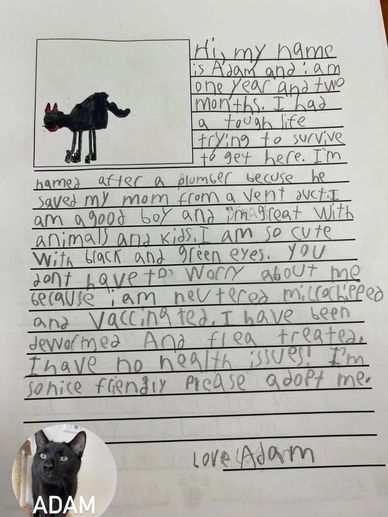 Hi, my name
is Adam and i am
one year and two
months. I had
a tough life
trying to survive
to get here. I'm
named after a plumber becuse he
saved my mom from a vent duct. I
am a good boy and i'm great with
animals and kids. I am so cute
with black and green eyes. you
dont have to worry about me
because i am neutered microchipped
and vaccinated. I have been
dewormed And flea treated.
I have no health issues! I'm
so nice friendly Please adopt me.
Love Adam
ADAM